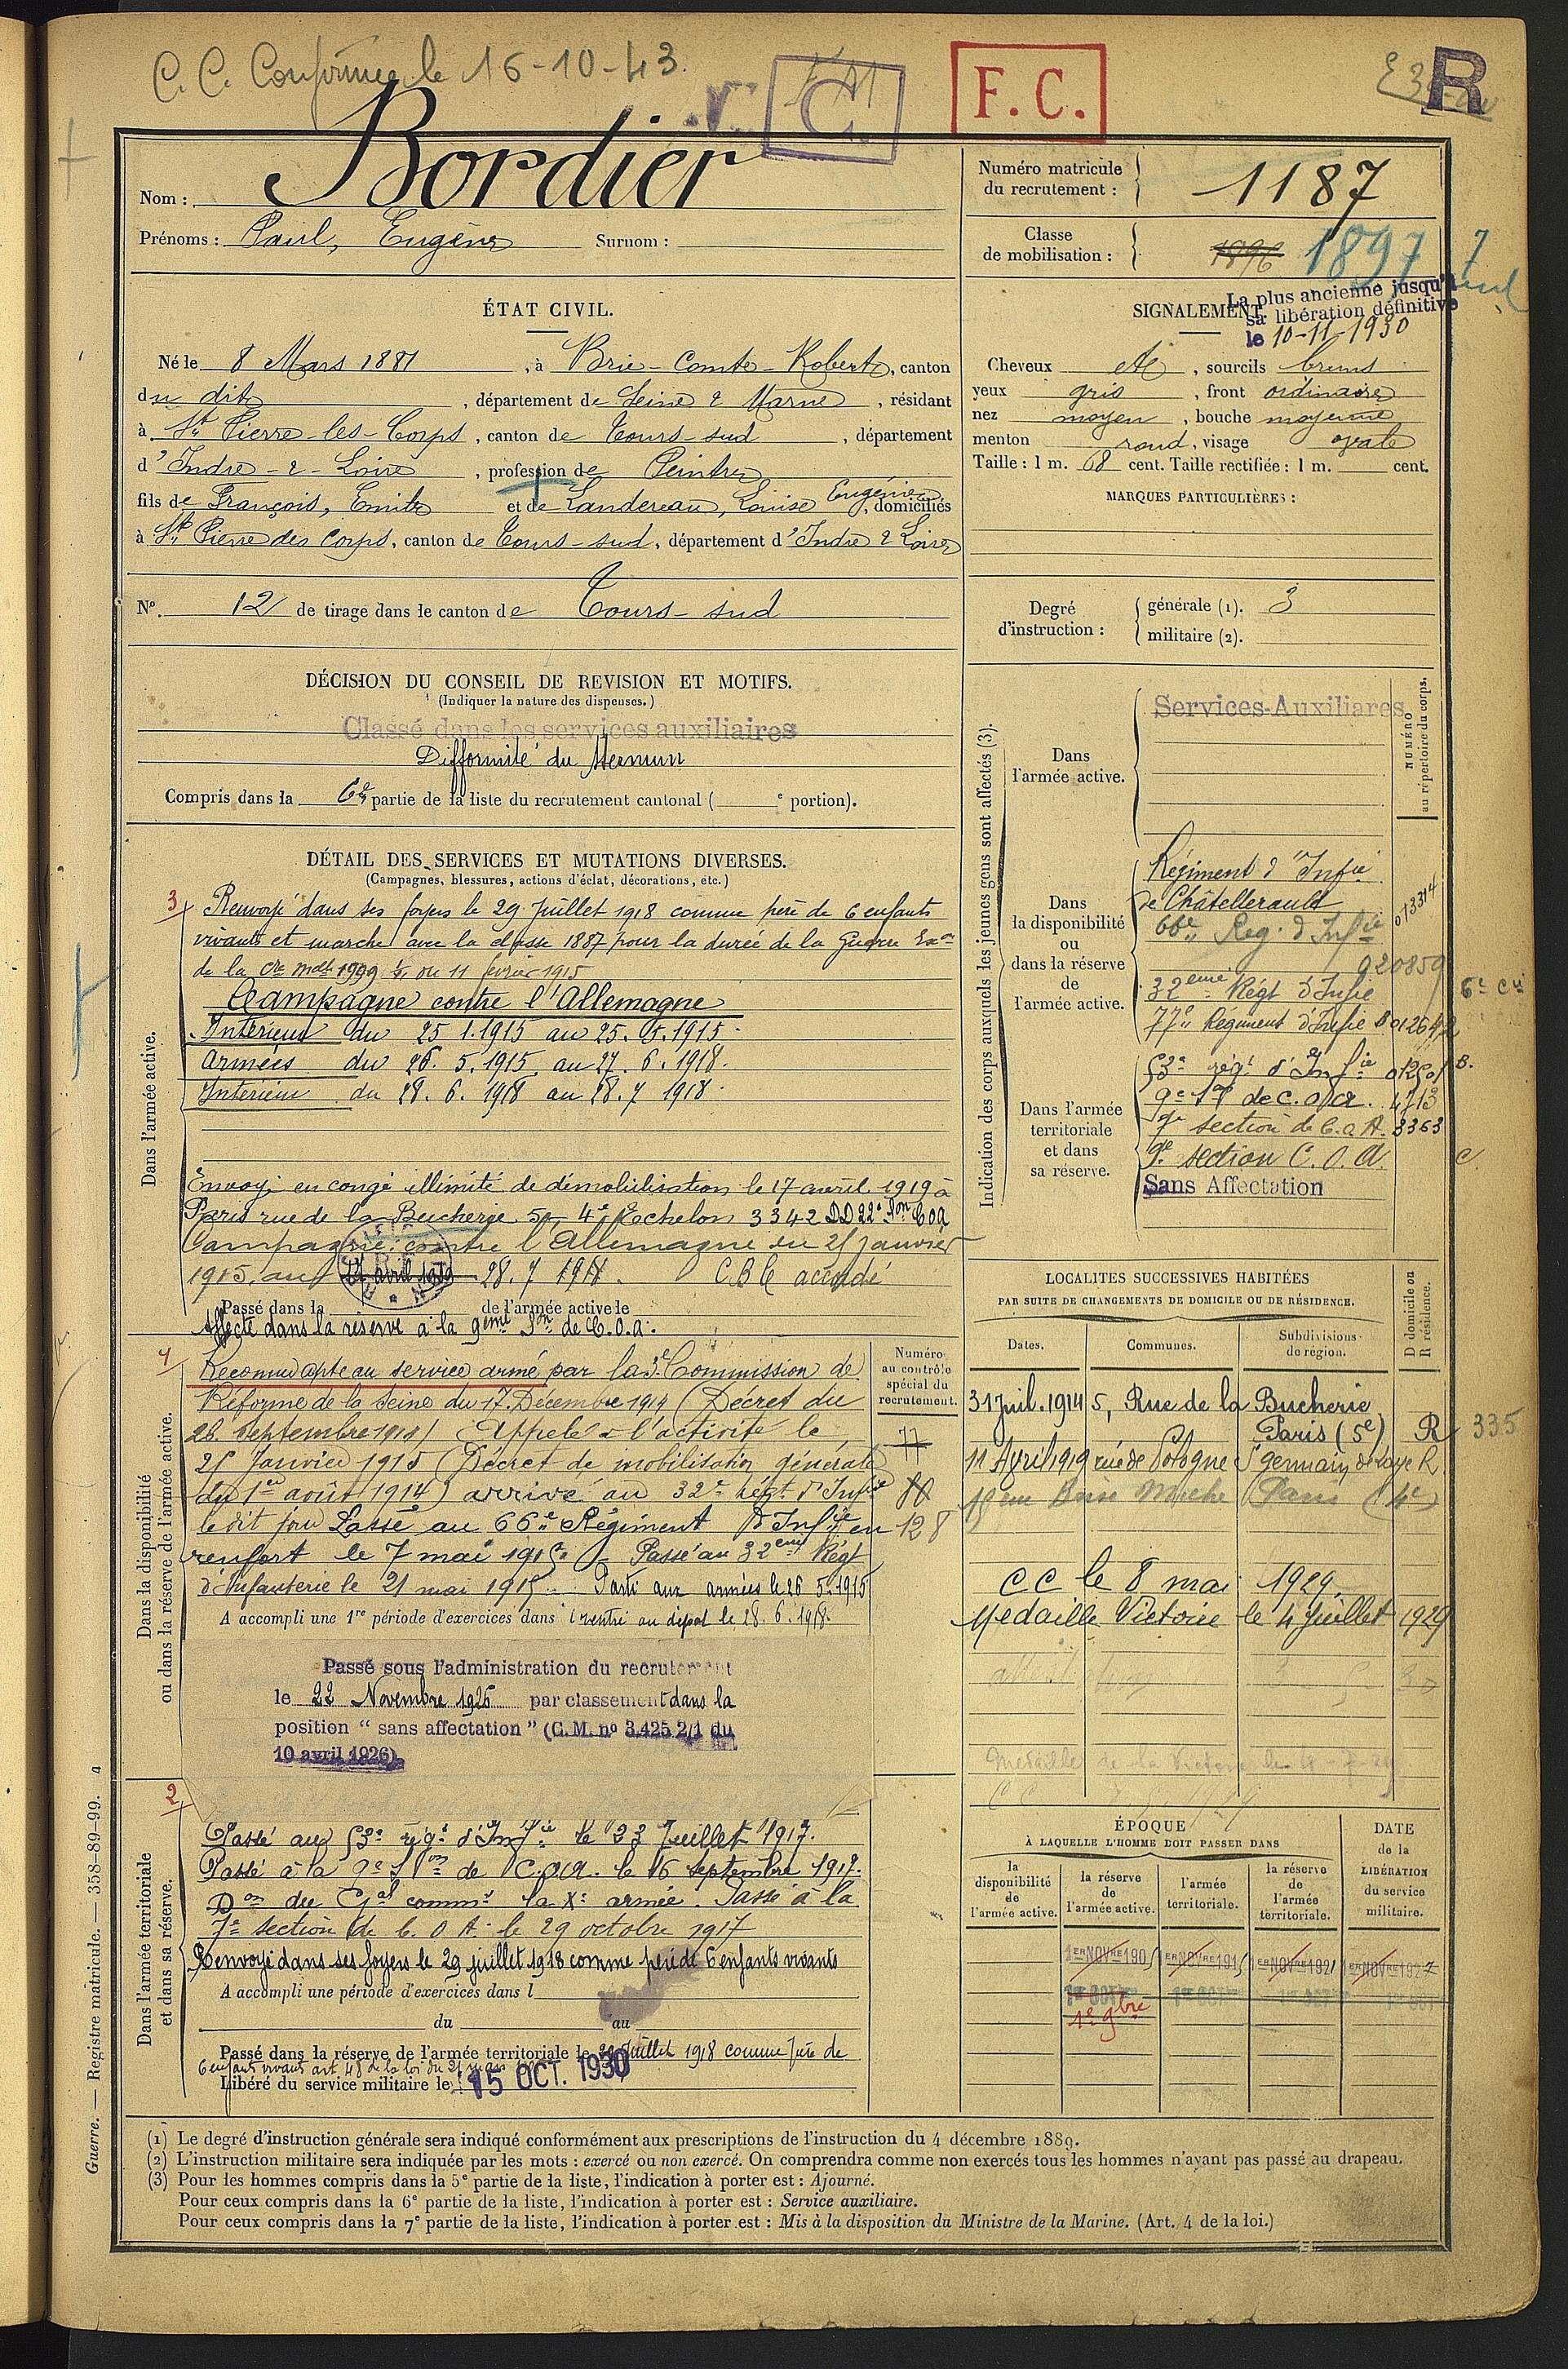 C. C. Confirmée le 16-10-43.
C
F. C.
R
Nom : Bordier
Prénoms : Paul, Eugène Surnom :
Numéro matricule du recrutement : 1187
Classe de mobilisation : 1896 1897
La plus ancienne jusqu'à
sa libération définitive
le 10-11-1930
ÉTAT CIVIL.
Né le 8 Mars 1881, à Brie-Comte-Robert, canton
du dit, département de Seine & Marne, résidant
à St Pierre-les-Corps, canton de Tours-sud, département
d'Indre-&-Loire, profession de Peintre
fils de François, Emile et de Landereau, Louise Eugénie, domiciliés
à St Pierre des Corps, canton de Tours-sud, département d'Indre & Loire
No. 12 de tirage dans le canton de Tours-sud
SIGNALEMENT.
Cheveux , sourcils bruns
yeux gris, front ordinaire
nez moyen, bouche moyenne
menton rond, visage ovale
Taille : 1 m. 68 cent. Taille rectifiée : 1 m. cent.
MARQUES PARTICULIÈRES :
Degré d'instruction : générale (1). 3
militaire (2).
DÉCISION DU CONSEIL DE REVISION ET MOTIFS.
(Indiquer la nature des dispenses.)
Classé dans les services auxiliaires
Difformité du
Compris dans la 6e partie de la liste du recrutement cantonal ( e portion).
DÉTAIL DES SERVICES ET MUTATIONS DIVERSES.
(Campagnes, blessures, actions d'éclat, décorations, etc.)
Dans l'armée active.
3
Renvoyé dans ses foyers le 29 Juillet 1918 comme père de 6 enfants
vivants et marche avec la classe 1887 pour la durée de la Guerre
de la 11 février 1915
Campagne contre l'Allemagne
Intérieur du 25.1.1915 au 25.5.1915.
Armées du 26.5.1915 au 27.6.1918.
Intérieur du 28.6.1918 au 28.7.1918.
Envoyé en congé illimité de démobilisation le 17 avril 1919 à
Paris rue de la Bucherie 5, 4e Echelon 3342 DD 22e Son COA
Campagne contre l'Allemagne du 25 janvier
1915 au 17 avril 1919 28.7.1918. C.B.C accordé
Passé dans la de l'armée active le
Affecté dans la réserve à la 9eme Son de C.O.A.
Dans la disponibilité
ou dans la réserve de l'armée active.
1
Reconnu apte au service armé par la 3e Commission de
Réforme de la Seine du 17 Décembre 1914 (Décret du
26 septembre 1914) Appelé à l'activité le
25 Janvier 1915 (Décret de mobilisation générale
du 1er août 1914) arrivé au 32e Régt d'Infie
le dit jour Passé au 66e Régiment d'Infie en
renfort le 7 mai 1915. Passé au 32eme Régt
d'Infanterie le 21 mai 1915. Parti aux armées le 26 5.1915
A accompli une 1re période d'exercices dans l rentré au dépôt le 28.6.1918.
Passé sous l'administration du recrutement
le 22 Novembre 1926 par classement dans la
position "sans affectation" (C.M. no 3.425 2/1 du
10 avril 1926)
Numéro au contrôle spécial du recrutement.
77
80
128
Dans l'armée territoriale
et dans sa réserve.
2
Passé au 53e régt d'Infie le 23 Juillet 1917.
Passé à la 9e Son de C.O.A. le 16 septembre 1917.
Don du Gal commt la Xe armée. Passé à la
7e section de C.O.A. le 29 octobre 1917
Renvoyé dans ses foyers le 29 juillet 1918 comme père de 6 enfants vivants
A accompli une période d'exercices dans l
du au
Passé dans la réserve de l'armée territoriale le 29 Juillet 1918 comme Père de
6 enfants vivants art. 48 de la loi du 21 mars
Libéré du service militaire le 15 OCT. 1930
Indication des corps auxquels les jeunes gens sont affectés (3).
NUMÉRO au répertoire du corps.
Dans l'armée active.
Services-Auxiliaires
Dans la disponibilité ou dans la réserve de l'armée active.
Régiment d'Infie
de Châtellerault 013314
66e Reg. d'Infie
920859
32eme Régt d'Infie
77e Régiment d'Infie
Dans l'armée territoriale et dans sa réserve.
53e régt d'Infie
9e Son de C.O.A. 4713
7e section de C.O.A. 3363
9e section C.O.A.
Sans Affectation
LOCALITES SUCCESSIVES HABITÉES
PAR SUITE DE CHANGEMENTS DE DOMICILE OU DE RÉSIDENCE.
Dates. Communes. Subdivisions de région. D domicile ou R résidence.
31 Juil. 1914 5, Rue de la Bucherie
Paris (5e) R 335
11 Avril 1919 rue de Pologne St germain de Laye R
Paris (4e)
CC le 8 mai 1929.
Medaille Victoire le 4 Juillet 1929
ÉPOQUE
À LAQUELLE L'HOMME DOIT PASSER DANS
DATE de la LIBÉRATION du service militaire.
la disponibilité de l'armée active.
la réserve de l'armée active.
l'armée territoriale.
la réserve de l'armée territoriale.
1ER NOVRE 1905 1ER NOVRE 1915 1ER NOVRE 1921 1ER NOVRE 1927
1e 9bre
(1) Le degré d'instruction générale sera indiqué conformément aux prescriptions de l'instruction du 4 décembre 1889.
(2) L'instruction militaire sera indiquée par les mots : exercé ou non exercé. On comprendra comme non exercés tous les hommes n'ayant pas passé au drapeau.
(3) Pour les hommes compris dans la 5e partie de la liste, l'indication à porter est : Ajourné.
Pour ceux compris dans la 6e partie de la liste, l'indication à porter est : Service auxiliaire.
Pour ceux compris dans la 7e partie de la liste, l'indication à porter est : Mis à la disposition du Ministre de la Marine. (Art. 4 de la loi.)
Guerre. — Registre matricule. — 358-89-99.